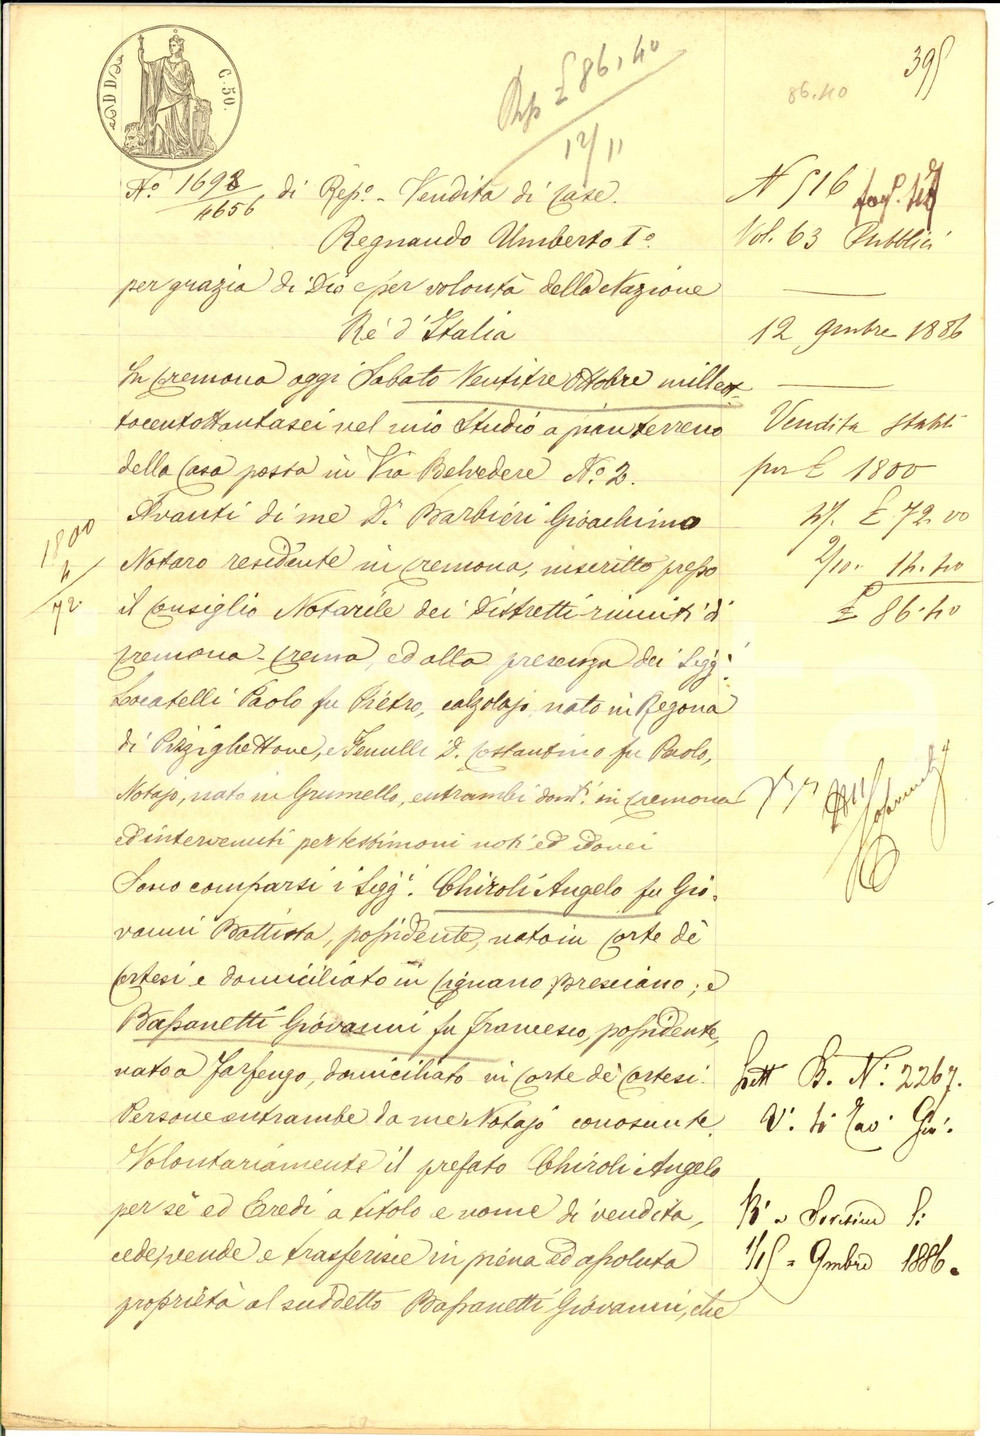 C. 50.
£ 86,40
12/11
86.40
395
N.° 1698/4656 di Rep.° - Vendita di Case.
Regnando Umberto I°
per grazia di Dio e per volontà della Nazione
Rè d'Italia
In Cremona oggi Sabato Ventitre Ottobre millot-
tocentottantasei nel mio Studio a pian terreno
della Casa posta in Via Belvedere N.° 2.
Avanti di me D.r Barbieri Gioachimo
Notaro residente in Cremona, inscritto presso
il Consiglio Notarile dei Distretti riuniti di
Cremona - Crema, ed alla presenza dei Sigg.i
Locatelli Paolo fu Pietro, calzolajo nato in Regona
di Pizzighettone, e Genulli D. Costantino fu Paolo,
Notajo, nato in Grumello, entrambi dom.i in Cremona
ed intervenuti per testimoni noti ed idonei
Sono comparsi i Sigg.i Chiroli Angelo fu Gio-
vanni Battista, possidente, nato in Corte dè
Cortesi e domiciliato in Cignano Bresciano; e
Bassanetti Giovanni fu Francesco, possidente,
nato a Farfengo, domiciliato in Corte dè Cortesi.
Persone entrambe da me Notajo conosciute.
Volontariamente il prefato Chiroli Angelo
per sè ed Eredi a titolo e nome di vendita,
cede, vende e trasferisce in piena ed assoluta
proprietà al suddetto Bassanetti Giovanni, che
1800
4
72
N 516
Vol. 63 Pubblici
12 9mbre 1886
Vendita stabili
per £ 1800
4/. £ 72.00
2/10. 14.40
£ 86.40
B. N.° 2267.
9mbre 1886.